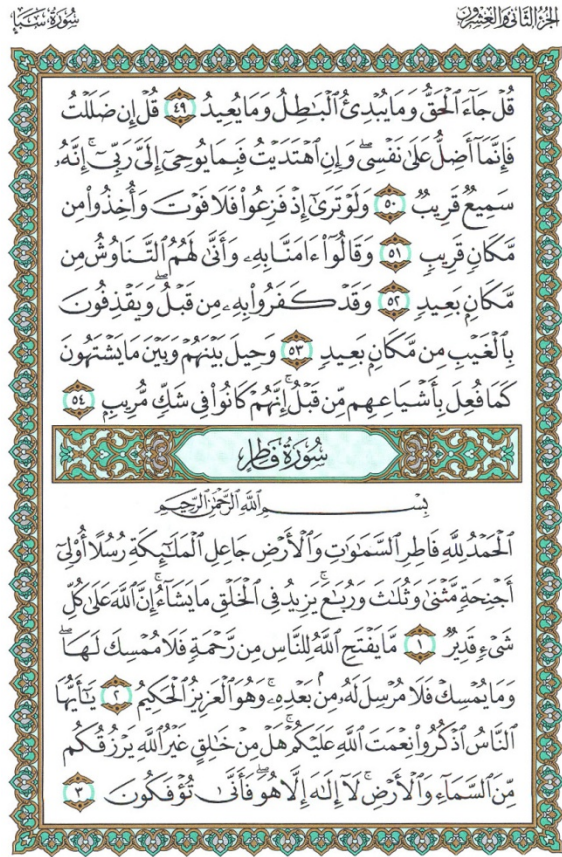 الجزء الثاني والعشرون
سورة سبإ
قُلْ جَآءَ ٱلْحَقُّ وَمَا يُبْدِئُ ٱلْبَٰطِلُ وَمَا يُعِيدُ ٤٩ قُلْ إِن ضَلَلْتُ
فَإِنَّمَآ أَضِلُّ عَلَىٰ نَفْسِى ۖ وَإِنِ ٱهْتَدَيْتُ فَبِمَا يُوحِىٓ إِلَىَّ رَبِّىٓ ۚ إِنَّهُۥ
سَمِيعٌ قَرِيبٌ ٥٠ وَلَوْ تَرَىٰٓ إِذْ فَزِعُوا۟ فَلَا فَوْتَ وَأُخِذُوا۟ مِن
مَّكَانٍ قَرِيبٍ ٥١ وَقَالُوٓا۟ ءَامَنَّا بِهِۦ وَأَنَّىٰ لَهُمُ ٱلتَّنَاوُشُ مِن
مَّكَانٍۭ بَعِيدٍ ٥٢ وَقَدْ كَفَرُوا۟ بِهِۦ مِن قَبْلُ ۖ وَيَقْذِفُونَ
بِٱلْغَيْبِ مِن مَّكَانٍۭ بَعِيدٍ ٥٣ وَحِيلَ بَيْنَهُمْ وَبَيْنَ مَا يَشْتَهُونَ
كَمَا فُعِلَ بِأَشْيَاعِهِم مِّن قَبْلُ ۚ إِنَّهُمْ كَانُوا۟ فِى شَكٍّ مُّرِيبٍۭ ٥٤
سورة فاطر
بِسْمِ ٱللَّهِ ٱلرَّحْمَٰنِ ٱلرَّحِيمِ
ٱلْحَمْدُ لِلَّهِ فَاطِرِ ٱلسَّمَٰوَٰتِ وَٱلْأَرْضِ جَاعِلِ ٱلْمَلَٰٓئِكَةِ رُسُلًا أُو۟لِىٓ
أَجْنِحَةٍ مَّثْنَىٰ وَثُلَٰثَ وَرُبَٰعَ ۚ يَزِيدُ فِى ٱلْخَلْقِ مَا يَشَآءُ ۚ إِنَّ ٱللَّهَ عَلَىٰ كُلِّ
شَىْءٍ قَدِيرٌ ١ مَّا يَفْتَحِ ٱللَّهُ لِلنَّاسِ مِن رَّحْمَةٍ فَلَا مُمْسِكَ لَهَا ۖ
وَمَا يُمْسِكْ فَلَا مُرْسِلَ لَهُۥ مِنۢ بَعْدِهِۦ ۚ وَهُوَ ٱلْعَزِيزُ ٱلْحَكِيمُ ٢ يَٰٓأَيُّهَا
ٱلنَّاسُ ٱذْكُرُوا۟ نِعْمَتَ ٱللَّهِ عَلَيْكُمْ ۚ هَلْ مِنْ خَٰلِقٍ غَيْرُ ٱللَّهِ يَرْزُقُكُم
مِّنَ ٱلسَّمَآءِ وَٱلْأَرْضِ ۚ لَآ إِلَٰهَ إِلَّا هُوَ ۖ فَأَنَّىٰ تُؤْفَكُونَ ٣